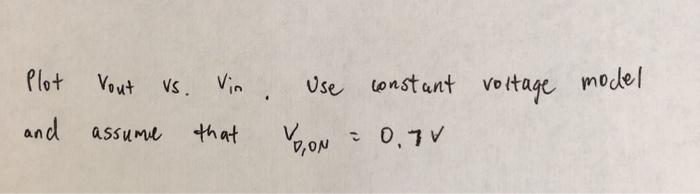 Plot Vout vs. Vin. Use constant voltage model
and assume that V_D,ON = 0.7 V